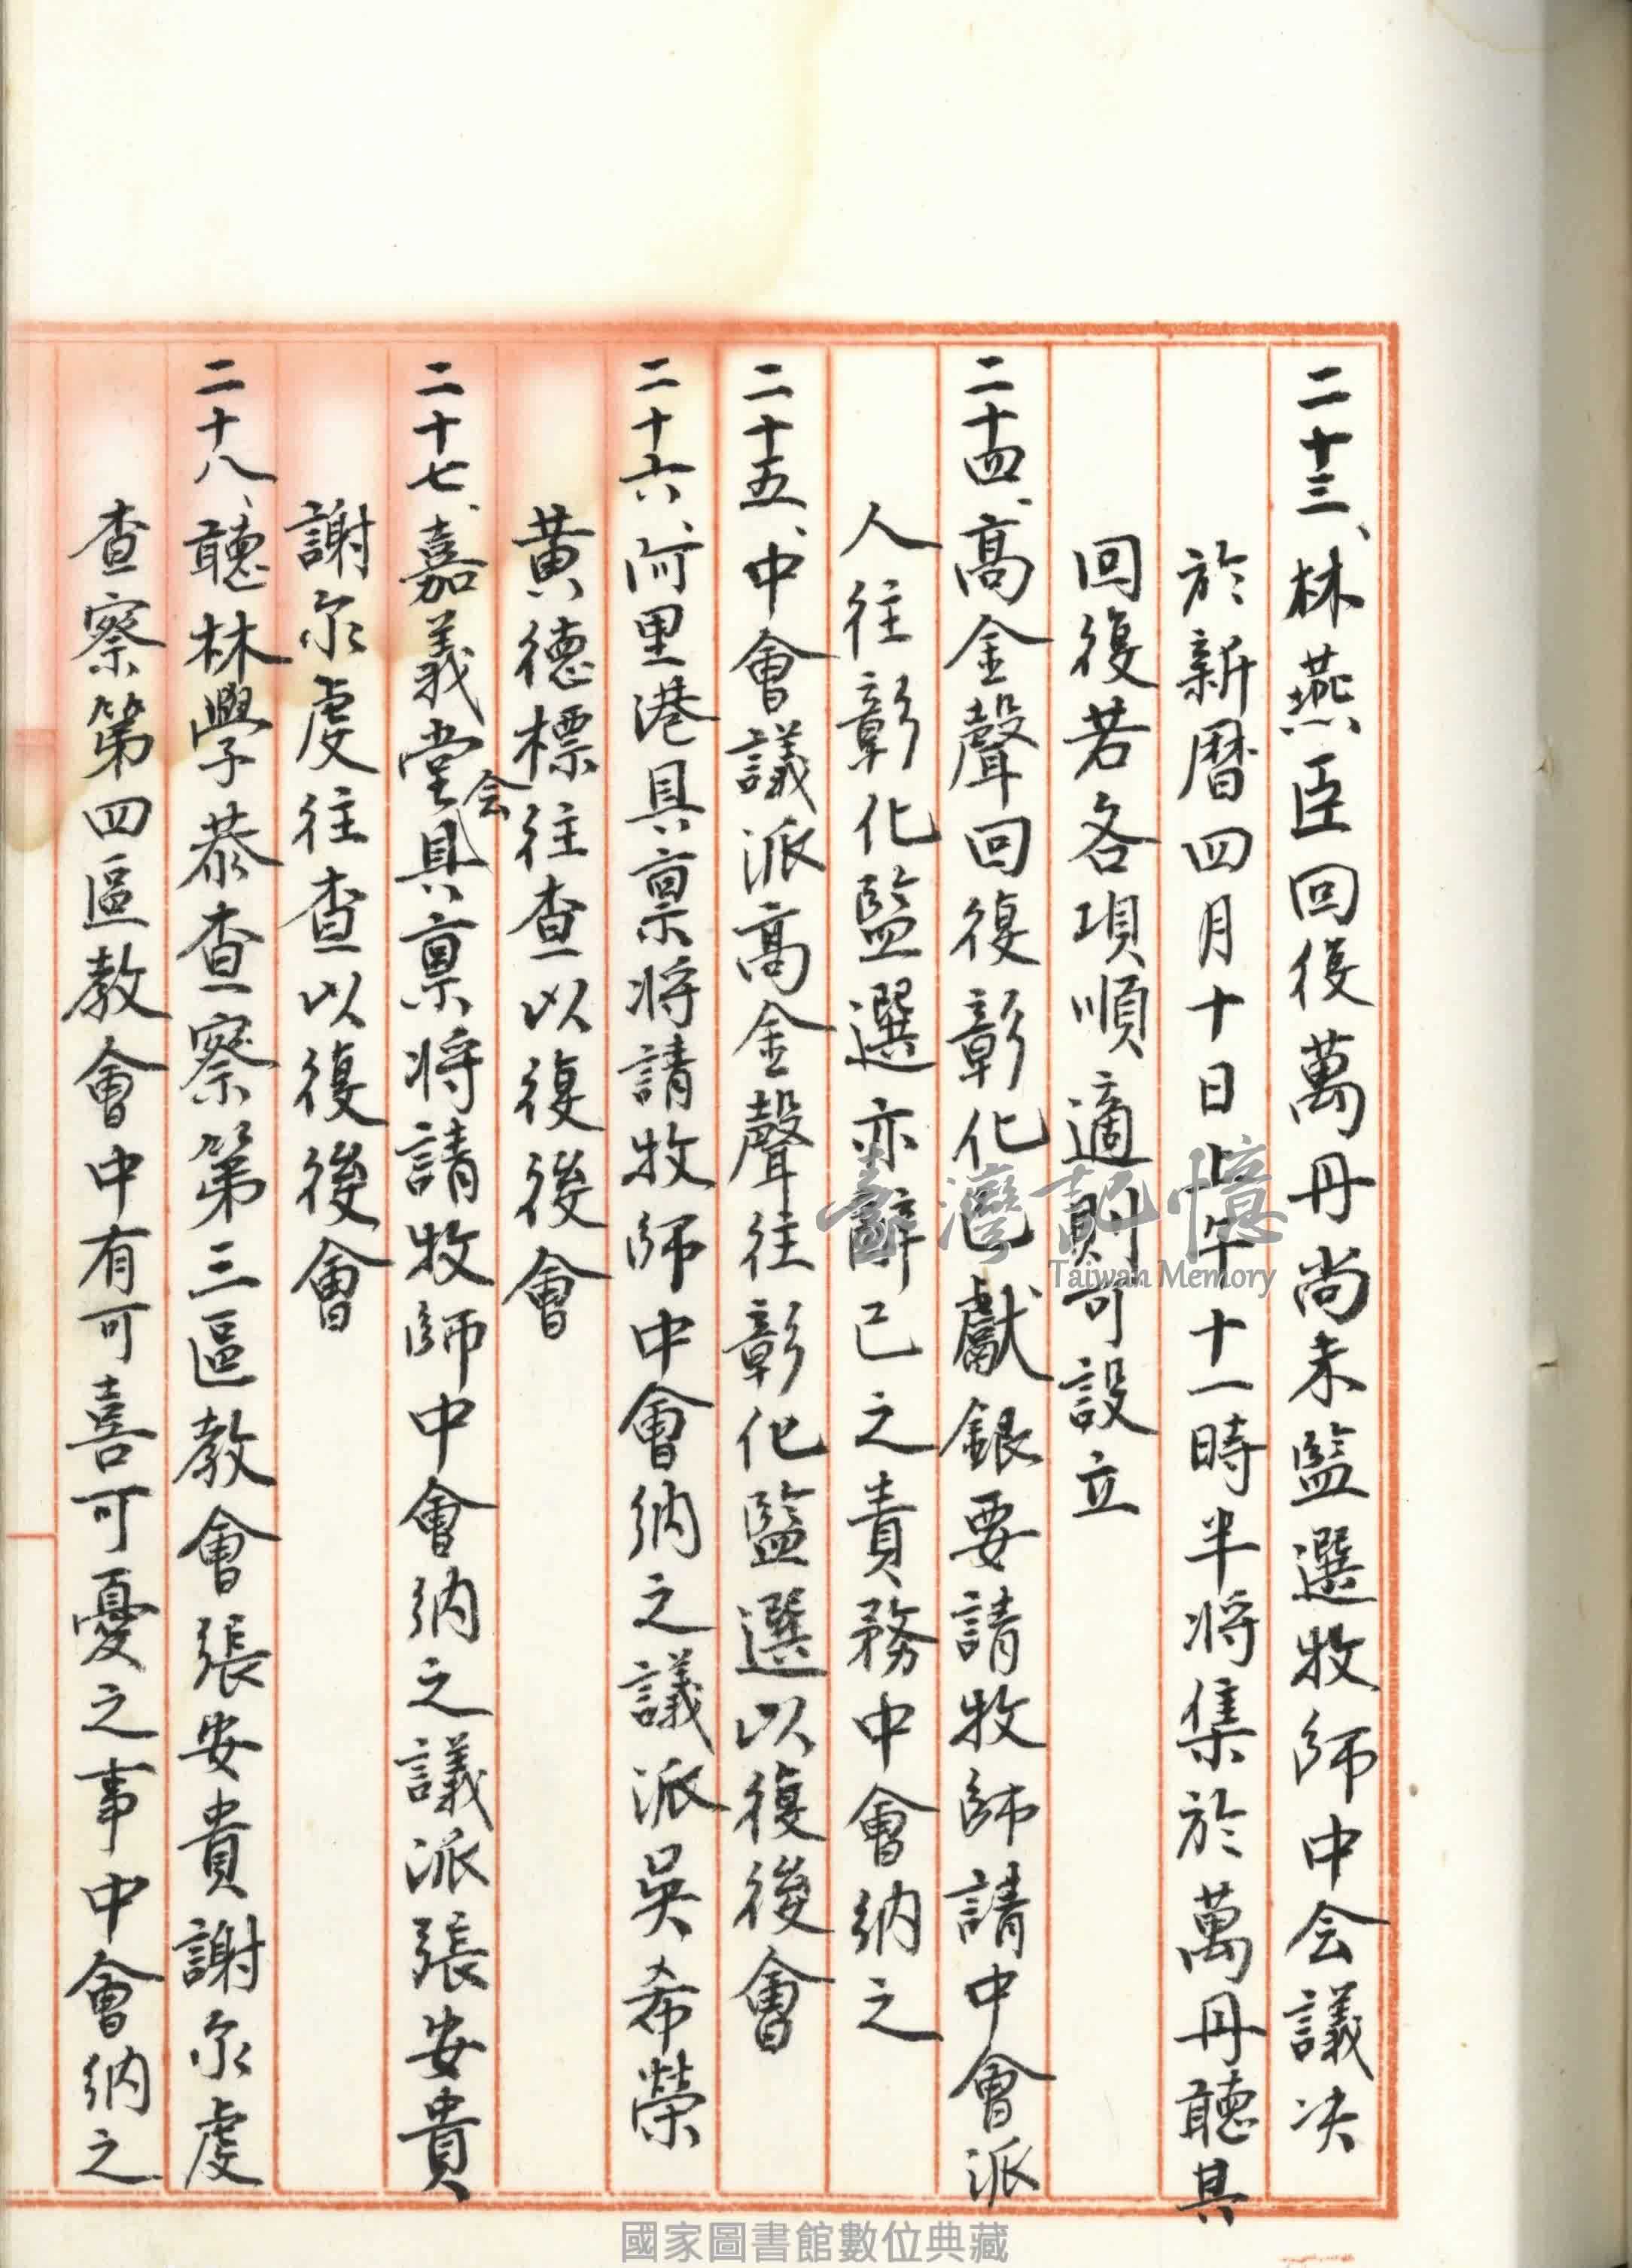 二十三、林燕臣回復萬丹尚未監選牧師中会議决
於新曆四月十日上午十一時半將集於萬丹聽其
回復若各項順適則可設立
二十四、高金聲回復彰化已獻銀要請牧師請中會派
人往彰化監選亦辭已之責務中會納之
二十五、中會議派高金聲往彰化監選以復後會
二十六、阿里港具禀將請牧師中會納之議派吳希榮
黄德標往查以復後會
二十七、嘉義堂会具禀將請牧師中會納之議派張安貴
謝尔虔往查以復後會
二十八、聽林學恭查察第三區教會張安貴謝尔虔
查察第四區教會中有可喜可憂之事中會納之
臺灣記憶
Taiwan Memory
國家圖書館數位典藏